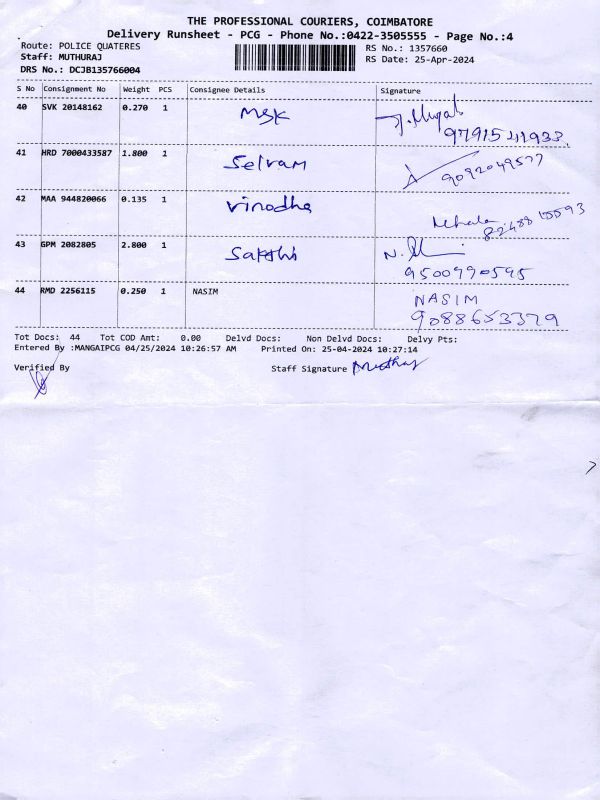 THE PROFESSIONAL COURIERS, COIMBATORE
Delivery Runsheet - PCG - Phone No.:0422-3505555 - Page No.:4
Route: POLICE QUATERES
RS No.: 1357660
Staff: MUTHURAJ
RS Date: 25-Apr-2024
DRS No.: DCJB135766004
S No Consignment No Weight PCS Consignee Details Signature
40 SVK 20148162 0.270 1 MSK
41 HRD 7000433587 1.800 1 Selvam 9092049577
42 MAA 944820066 0.135 1 Vinodha
43 GPM 2082805 2.800 1 Sakthi
9500990595
44 RMD 2256115 0.250 1 NASIM NASIM
9088653379
Tot Docs: 44 Tot COD Amt: 0.00 Delvd Docs: Non Delvd Docs: Delvy Pts:
Entered By :MANGAIPCG 04/25/2024 10:26:57 AM Printed On: 25-04-2024 10:27:14
Verified By Staff Signature Muthuraj